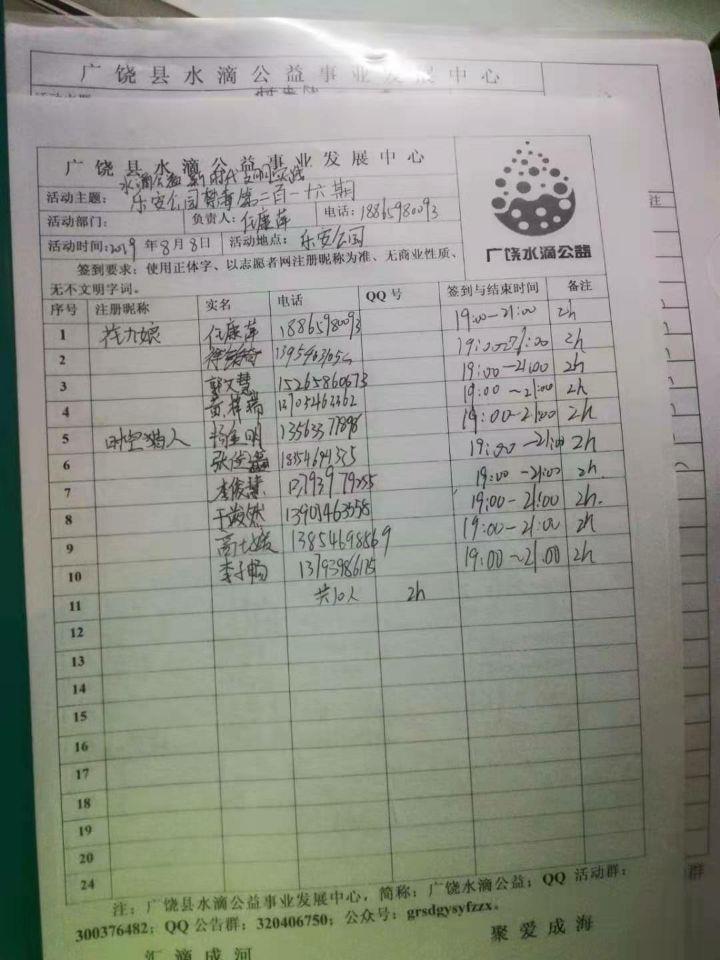 广饶县水滴公益事业发展中心
广饶县水滴公益事业发展中心
水滴公益新时代文明实践
活动主题: 乐安公园禁毒第二百一十六期
活动部门: 负责人:任康萍 电话:18865980093
活动时间:2019年8月8日 活动地点:乐安公园
广饶水滴公益
签到要求:使用正体字、以志愿者网注册昵称为准、无商业性质、
无不文明字词。
序号 注册昵称 实名 电话 QQ号 签到与结束时间 备注
1 任康萍 18865980093 19:00-21:00 2h
2 19:00-21:00 2h
3 郭文慧 15265860673 19:00-21:00 2h
4 19:00~21:00 2h
5 时空猎人 杨金明 19:00-21:00 2h
6 19:00-21:00 2h
7 李俊慧 19:00-21:00 2h.
8 19:00-21:00 2h.
9 13854698569 19:00-21:00 2h
10 李子畅 19:00~21:00 2h
11 共10人 2h
12
13
14
15
16
17
18
19
20
24
注:广饶县水滴公益事业发展中心,简称:广饶水滴公益;QQ活动群:
300376482;QQ公告群:320406750;公众号:grsdgysyfzzx。
汇滴成河 聚爱成海